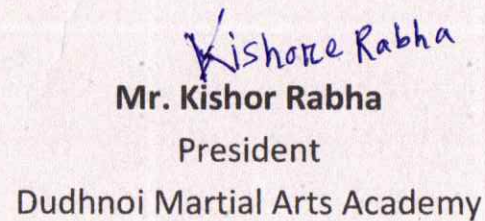 Kishore Rabha
Mr. Kishor Rabha
President
Dudhnoi Martial Arts Academy